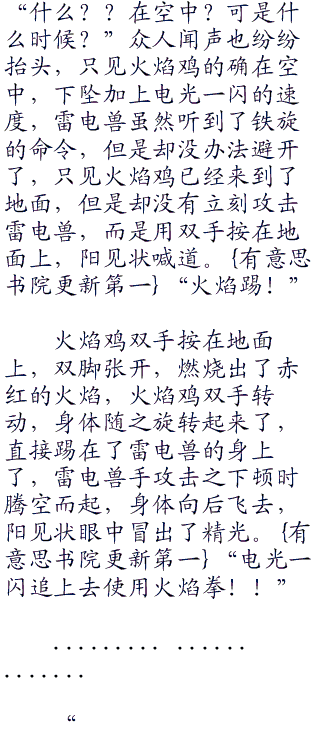 “什么？？在空中？可是什
么时候？”众人闻声也纷纷
抬头，只见火焰鸡的确在空
中，下坠加上电光一闪的速
度，雷电兽虽然听到了铁旋
的命令，但是却没办法避开
了，只见火焰鸡已经来到了
地面，但是却没有立刻攻击
雷电兽，而是用双手按在地
面上，阳见状喊道。{有意思
书院更新第一}“火焰踢！”
火焰鸡双手按在地面
上，双脚张开，燃烧出了赤
红的火焰，火焰鸡双手转
动，身体随之旋转起来了，
直接踢在了雷电兽的身上
了，雷电兽手攻击之下顿时
腾空而起，身体向后飞去，
阳见状眼中冒出了精光。{有
意思书院更新第一}“电光一
闪追上去使用火焰拳！！”
......... ......
.......
“